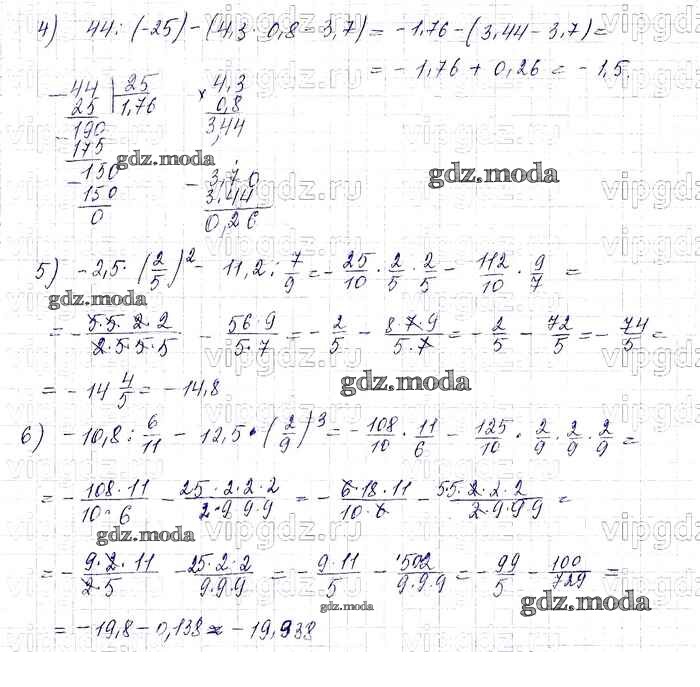 4) 44 : (-25) - (4,3 · 0,8 - 3,7) = -1,76 - (3,44 - 3,7) =
= -1,76 + 0,26 = -1,5.
44 | 25
25 | 1,76
190
175
150
150
0
× 4,3
0,8
3,44
- 3,70
3,44
0,26
gdz.moda
gdz.moda
5) -2,5 · (2/5)² - 11,2 : 7/9 = -25/10 · 2/5 · 2/5 - 112/10 · 9/7 =
gdz.moda
= -5·5·2·2/2·5·5·5 - 56·9/5·7 = -2/5 - 8·7·9/5·7 = -2/5 - 72/5 = -74/5 =
= -14 4/5 = -14,8
gdz.moda
6) -10,8 : 6/11 - 12,5 · (2/9)³ = -108/10 · 11/6 - 125/10 · 2/9 · 2/9 · 2/9 =
= -108·11/10·6 - 25·2·2·2/2·9·9·9 = -6·18·11/10·6 - 55·2·2·2/2·9·9·9 =
gdz.moda
= -9·2·11/2·5 - 25·2·2/9·9·9 = -9·11/5 - 502/9·9·9 = -99/5 - 100/729 =
gdz.moda
gdz.moda
= -19,8 - 0,138 ≈ -19,938
vipgdz.ru